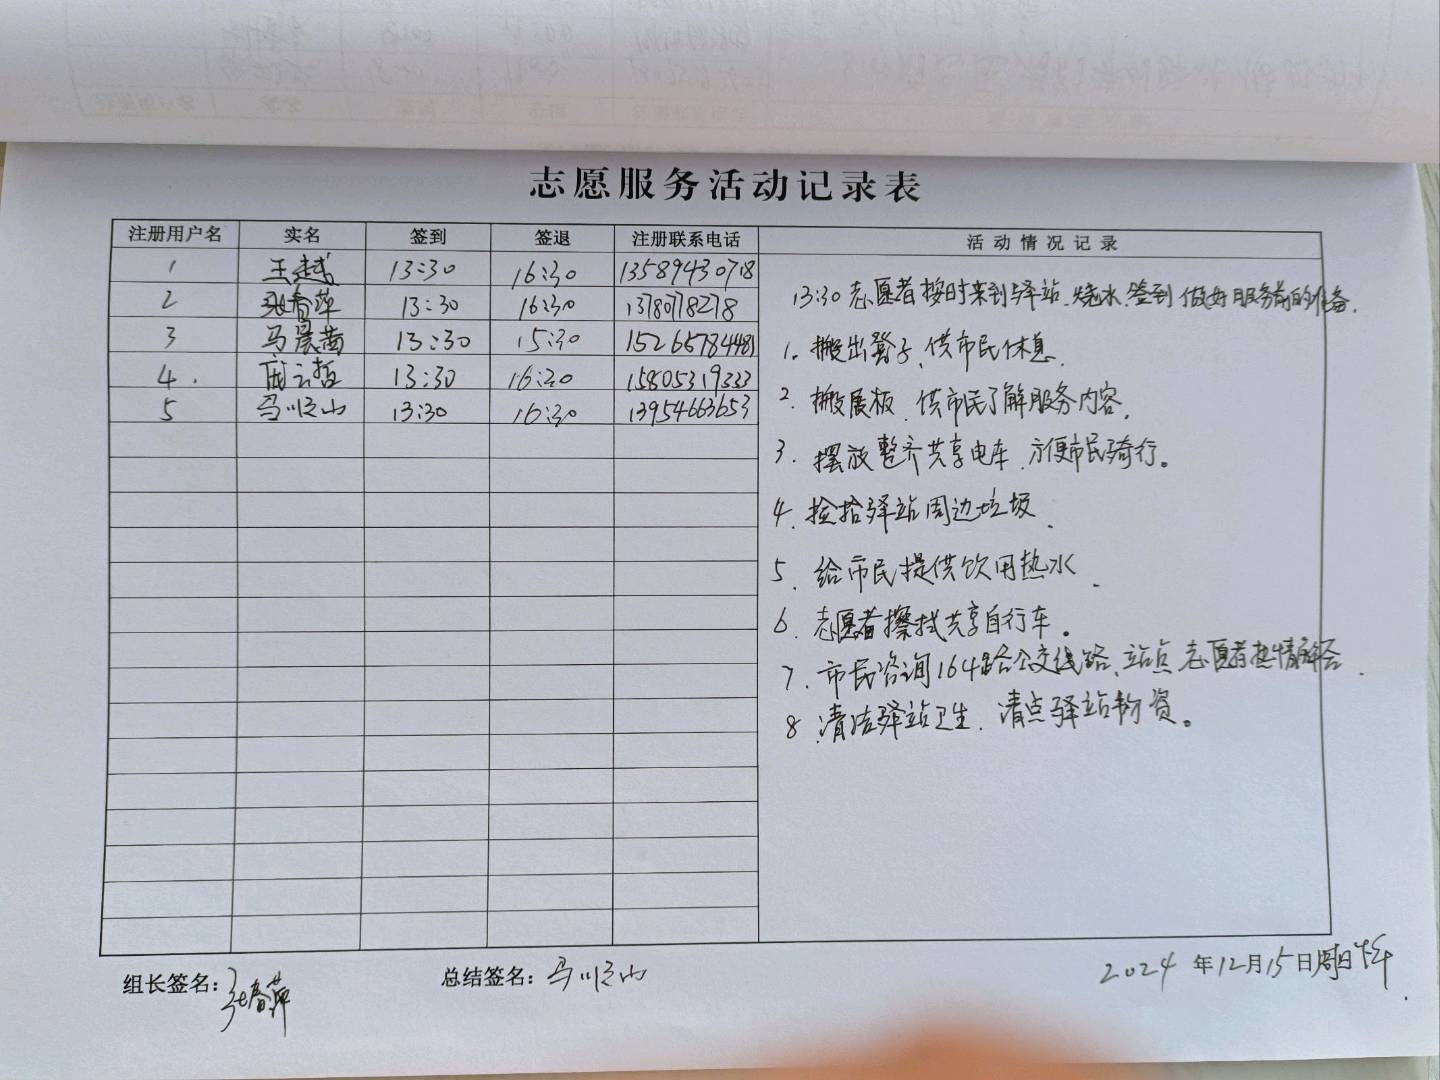 志愿服务活动记录表
注册用户名 实名 签到 签退 注册联系电话 活动情况记录
1 王越 13:30 16:30 13589430718
2 张春萍 13:30 16:30 13780778278
3 马晨茜 13:30 15:30 15265784481
4. 13:30 16:30 15805319333
5 马顺山 13:30 16:30 13954663653
13:30志愿者按时来到驿站、烧水、签到 做好服务前的准备.
1. 搬出凳子、供市民休息.
2. 搬展板、供市民了解服务内容.
3. 摆放整齐共享电车、方便市民骑行。
4. 捡拾驿站周边垃圾.
5. 给市民提供饮用热水.
6. 志愿者擦拭共享自行车。
7. 市民咨询164路公交线路、站点、志愿者热情解答.
8. 清洁驿站卫生、清点驿站物资。
组长签名: 张春萍 总结签名: 马顺山 2024年12月15日周日下午.